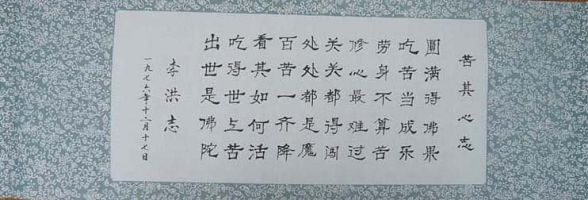 苦其心志
圓满得佛果
吃苦当成乐
劳身不算苦
修心最难过
关关都得闯
处处都是魔
百苦一齐降
看其如何活
吃得世上苦
出世是佛陀
李洪志
一九七六年十二月十七日